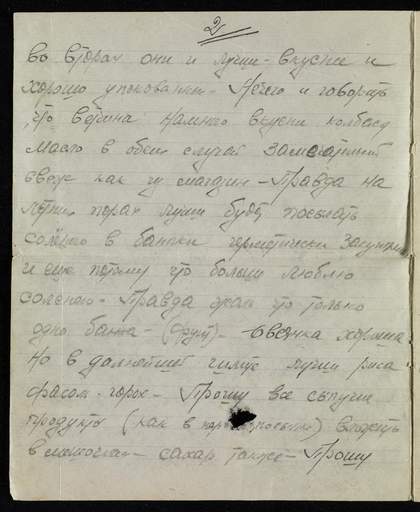 2
во вторых они и лучше - вкусны и
хорошо упакованы - Нечего и говорить
что ветчина намного вкусни колбасы
масло в обеих случай замечательный
свеж как из магазин - Правда на
летних порах лучше будет посылать
соленого в банки герметически закупор
и еще потому что больше люблю
соленого - Правда жаль что только
одно банка - (фунт) - овсянка хороша
но в дальнейшем лучше риса
фасоль - горох - Прошу все сыпучие
продукты (как в посылки) вложить
в мешочках - сахар также - Прошу